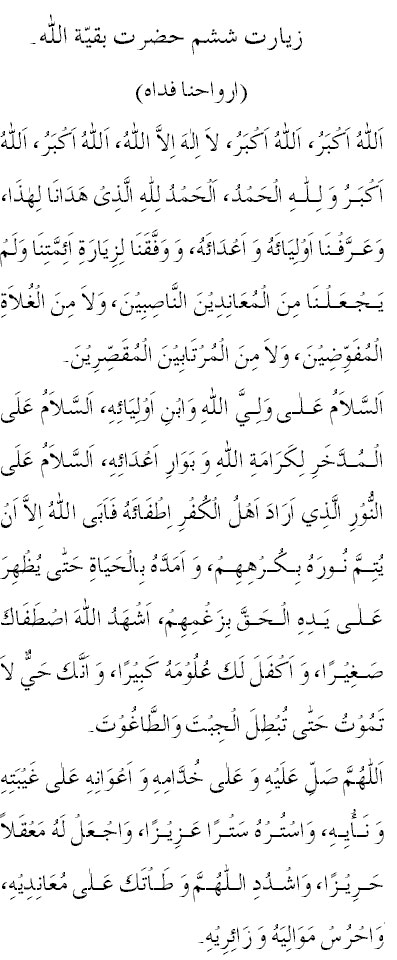 زیارت ششم حضرت بقیّة الله۔
(ارواحنا فداه)
اَللهُ اَكْبَرُ، اَللهُ اَكْبَرُ، لاَ اِلٰهَ اِلاَّ اللهُ، اَللهُ اَكْبَرُ، اَللهُ
اَكْبَرُ وَ لِـلّٰـهِ الْحَمْدُ، اَلْحَمْدُ لِلّٰهِ الَّذِىْ هَدَانَا لِهٰذَا،
وَعَرَّفْـنَا اَوْلِيَائَهُ وَ اَعْدَائَهُ، وَ وَفَّقَنَا لِزِيَارَةِ اَئِمَّتِنَا وَلَمْ
يَـجْـعَـلْـنَا مِنَ الْمُعَانِدِيْنَ النَّاصِبِيْنَ، وَلاَ مِنَ الْغُلاَةِ
الْمُفَوِّضِيْنَ، وَلاَ مِنَ الْمُرْتَابِيْنَ الْمُقَصِّرِيْنَ۔
اَلسَّلاَمُ عَـلـٰى وَلِيِّ اللهِ وَابْنِ اَوْلِيَائِهِ، اَلسَّلاَمُ عَلَى
الْـمُـدَّخَرِ لِكَرَامَةِ اللهِ وَ بَوَارِ اَعْدَائِهِ، اَلسَّلاَمُ عَلَى
النُّوْرِ الَّذِي اَرَادَ اَهْلُ الْكُفْرِ اِطْفَائَهُ فَاَبَى اللهُ اِلاَّ اَنْ
يُتِمَّ نُـورَهُ بِـكُـرْهِـهِـمْ، وَ اَمَدَّهُ بِالْحَيَاةِ حَتّٰى يُظْهِرَ
عَـلـٰى يَـدِهِ الْـحَـقَّ بِرَغْمِهِمْ، اَشْهَدُ اَنَّ اللهَ اصْطَفَاكَ
صَـغِيْـرًا، وَ اَكْفَلَ لَكَ عُلُوْمَهُ كَبِيْرًا، وَ اَنَّكَ حَيٌّ لاَ
تَمُوْتُ حَتّٰى تُبْطِلَ الْجِبْتَ وَالطَّاغُوْتَ۔
اَللّٰهُمَّ صَلِّ عَلَيْهِ وَ عَلٰى خُدَّامِهِ وَ اَعْوَانِهِ عَلٰى غَيْبَتِهِ
وَ نَـأْيِـهِ، وَاسْتُـرْهُ سَتْـرًا عَـزِيْـزًا، وَاجْعَلْ لَهُ مَعْقَلاً
حَـرِيْـزًا، وَاشْـدُدِ الـلّٰهُـمَّ وَ طْـأَتَكَ عَـلـٰى مُعَانِدِيْهِ،
وَاحْرُسْ مَوَالِيَهُ وَ زَائِرِيْهِ۔